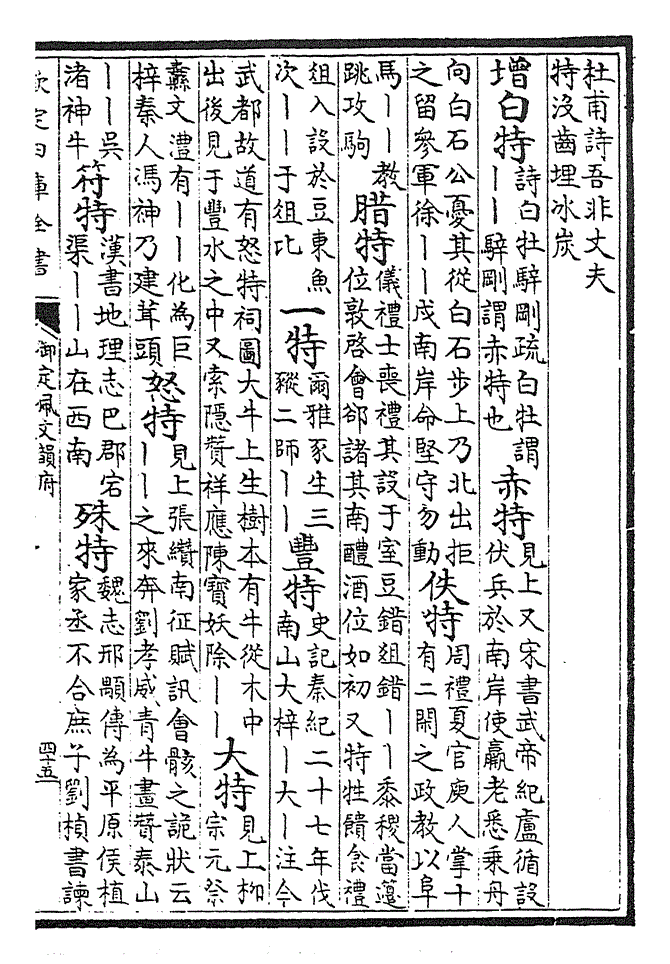 杜甫詩吾非丈夫
特沒齒埋冰炭
增白特
詩白牡騂剛疏白牡謂
丨丨騂剛謂赤特也
赤特
見上又宋書武帝紀盧循設
伏兵於南岸使羸老悉乗舟
向白石公憂其從白石步上乃北出拒
之留參軍徐丨丨戍南岸命堅守勿動
佚特
周禮夏官庾人掌十
有二閑之政教以阜
馬丨丨教
跳攻駒
腊特
儀禮士喪禮其設于室豆錯俎錯丨丨黍稷當籩
位敦啓會郤諸其南醴酒位如初又特牲饋食禮
俎入設於豆東魚
次丨丨于俎比
一特
爾雅豕生三
豵二師丨丨
豐特
史記秦紀二十七年伐
南山大梓丨大丨注今
武都故道有怒特祠圖大牛上生樹本有牛從木中
出後見于豐水之中又索隱贊祥應陳寶妖除丨丨
大特
見上柳
宗元祭
纛文澧有丨丨化為巨
梓秦人馮神乃建茸頭
怒特
見上張纘南征賦訊會骸之詭狀云
丨丨之來奔劉孝威青牛畫贊泰山
丨丨吳
渚神牛
符特
漢書地理志巴郡宕
渠丨丨山在西南
殊特
魏志邢顒傳為平原侯植
家丞不合庶子劉楨書諫
欽定四庫全書
御定佩文韻府
四十五